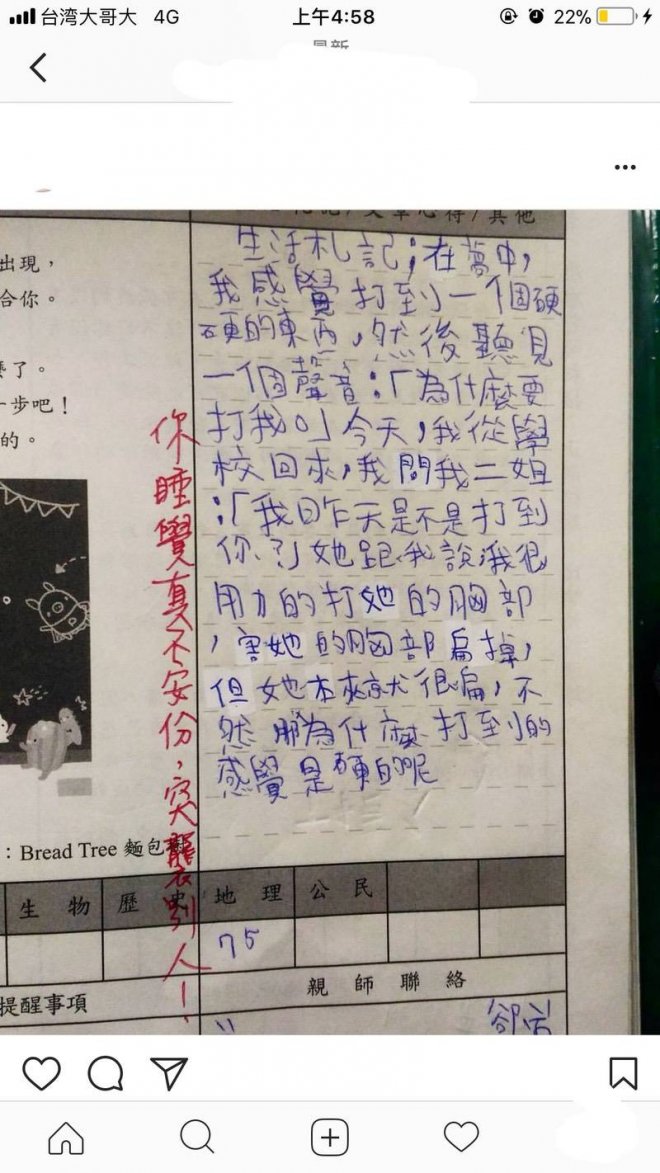 台湾大哥大 4G 上午4:58 22%
最新
生活札記；在夢中，
我感覺打到一個硬
硬的東西，然後聽見
一個聲音：「為什麼要
打我」今天，我從學
校回來，我問我二姐
：「我昨天是不是打到
你？」她跟我說我很
用力的打她的胸部
，害她的胸部扁掉，
但她本來就很扁，不
然那為什麼打到的
感覺是硬的呢
你睡覺真不安份，突襲別人！
出現，
合你。
麼了。
一步吧！
的。
：Bread Tree 麵包
生物 歷史 地理 公民
75
提醒事項
親師聯絡